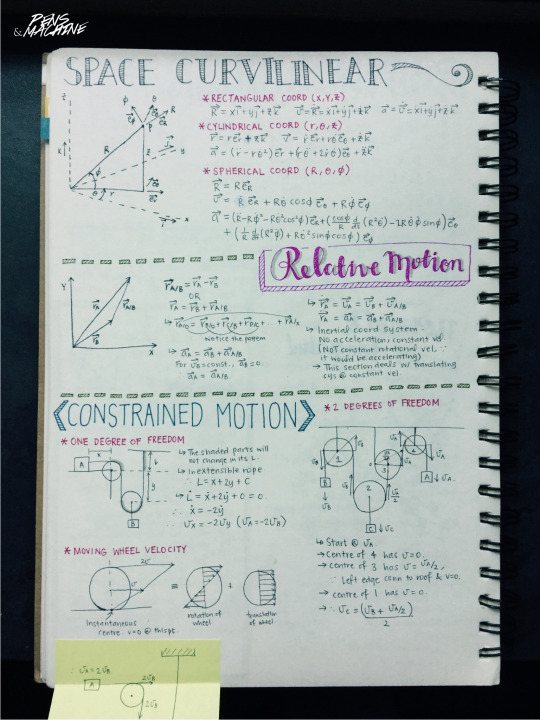 PENS
& MACHINE
SPACE CURVILINEAR
* RECTANGULAR COORD (x,Y,z)
R⃗ = xi⃗ + yj⃗ + zk⃗   v⃗ = Ṙ⃗ = ẋi⃗ + ẏj⃗ + żk⃗   a⃗ = v̇⃗ = ẍi⃗ + ÿj⃗ + z̈k⃗
* CYLINDRICAL COORD (r,θ,z)
* SPHERICAL COORD (R,θ,φ)
R⃗ = Re⃗R
v⃗ = Ṙe⃗R + Rθ̇ cosφ e⃗θ + Rφ̇ e⃗φ
Relative Motion
r⃗A/B = r⃗A - r⃗B
OR
r⃗A = r⃗B + r⃗A/B
notice the pattern
↳ a⃗A = a⃗B + a⃗A/B
For v⃗B = const., a⃗B = 0.
a⃗A = a⃗A/B
↳ ṙ⃗A = v⃗A = v⃗B + v⃗A/B
r̈⃗A = a⃗A = a⃗B + a⃗A/B
↳ Inertial coord system -
No acceleration, constant vel
(NOT constant rotational vel, ∵
it would be accelerating)
↳ This section deals w/ translating
sys @ constant vel.
CONSTRAINED MOTION
* ONE DEGREE OF FREEDOM
↳ The shaded parts will
not change in its L.
↳ Inextensible rope
∴ L = x + 2y + C
↳ L̇ = ẋ + 2ẏ + 0 = 0.
∴ ẋ = -2ẏ
∴ vx = -2vy (vA = -2vB)
A
x
b
y
B
* 2 DEGREES OF FREEDOM
1
2
3
4
A
B
C
↳ Start @ vA
→ Centre of 4 has v=0.
→ centre of 3 has v = vA/2,
∵ Left edge conn to roof & v=0.
→ centre of 1 has v=0.
→ ∴ vC = (vB + vA/2)
2
* MOVING WHEEL VELOCITY
2v
v
≡
+
Instantaneous
centre v=0 @ this pt.
rotation of
wheel
translation
of wheel
∴ vA = 2vB
A
2vB
2vB